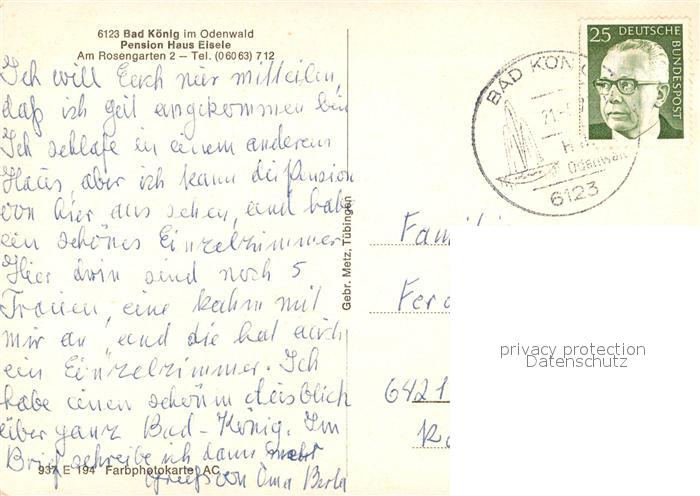 6123 Bad König im Odenwald
Pension Haus Eisele
Am Rosengarten 2 – Tel. (06063) 712
Ich will Euch nur mitteilen,
daß ich gut angekommen bin
Ich schlafe in einem anderen
Haus, aber ich kann die Pension
von hier aus sehen, und habe
ein schönes Einzelzimmer.
Hier drin sind noch 5
Frauen, eine kahm mit
mir an, und die hat auch
ein Einzelzimmer. Ich
habe einen schönen Ausblick
über ganz Bad-König. Im
Brief schreibe ich dann mehr
Grüße von Oma Berta
937 E 194 Farbphotokarte AC
Gebr. Metz, Tübingen
25 DEUTSCHE BUNDESPOST
BAD KÖNIG
21.
Odenwald
6123
Famili
Ferd
6421
privacy protection
Datenschutz